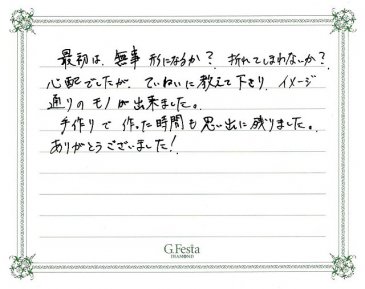 最初は、無事 形になるか？ 折れてしまわないか？
心配でしたが、ていねいに教えて下さり、イメージ
通りのモノが出来ました。
手作りで 作った時間も思い出に残りました。
ありがとうございました！
G.Festa
DIAMOND